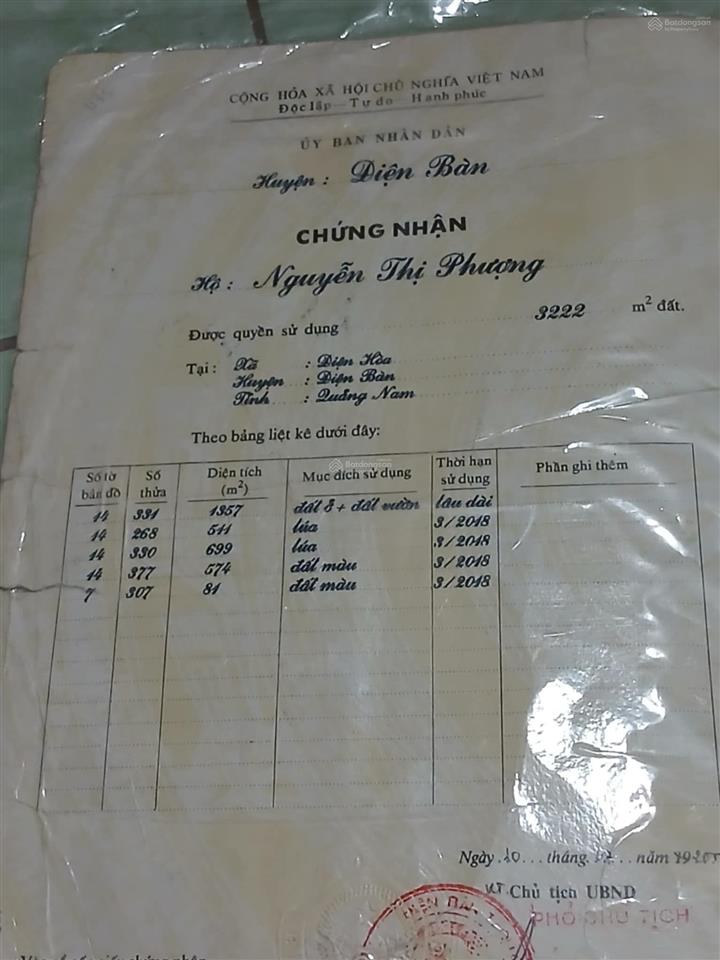 Batdongsan
by PropertyGuru
CỘNG HÒA XÃ HỘI CHỦ NGHĨA VIỆT NAM
Độc lập — Tự do — Hạnh phúc
ỦY BAN NHÂN DÂN
Huyện : Điện Bàn
CHỨNG NHẬN
Hộ : Nguyễn Thị Phượng
Được quyền sử dụng 3222 m² đất.
Tại : Xã : Điện Hòa
Huyện : Điện Bàn
Tỉnh : Quảng Nam
Theo bảng liệt kê dưới đây:
Số tờ bản đồ Số thửa Diện tích (m²) Mục đích sử dụng Thời hạn sử dụng Phần ghi thêm
14 331 1357 đất ở + đất vườn lâu dài
14 268 511 lúa 3/2018
14 330 699 lúa 3/2018
14 377 574 đất màu 3/2018
7 307 81 đất màu 3/2018
Batdongsan
Ngày 10 tháng năm
KT. Chủ tịch UBND
PHÓ CHỦ TỊCH